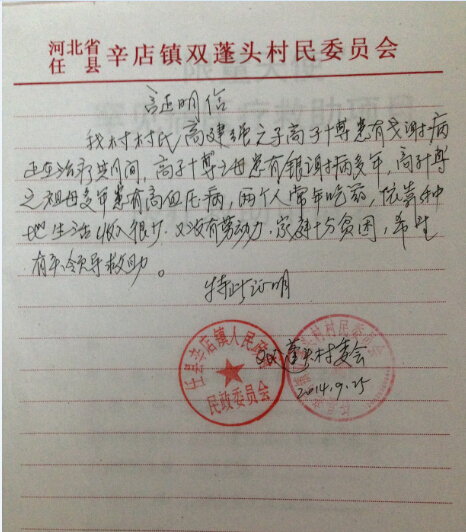 河北省
任 县
辛店镇双蓬头村民委员会
证明信
我村村民高建强之子高子博患有戈谢病
正在治疗期间，高子博之母患有银屑病多年，高子博
之祖母多年患有高血压病，两个人常年吃药，依靠种
地生活收入很少．又没有劳动力．家庭十分贫困，希望
有关领导救助。
特此证明
双蓬头村委会
2014.9.25
任县辛店镇人民政府
民政委员会
村民委员会